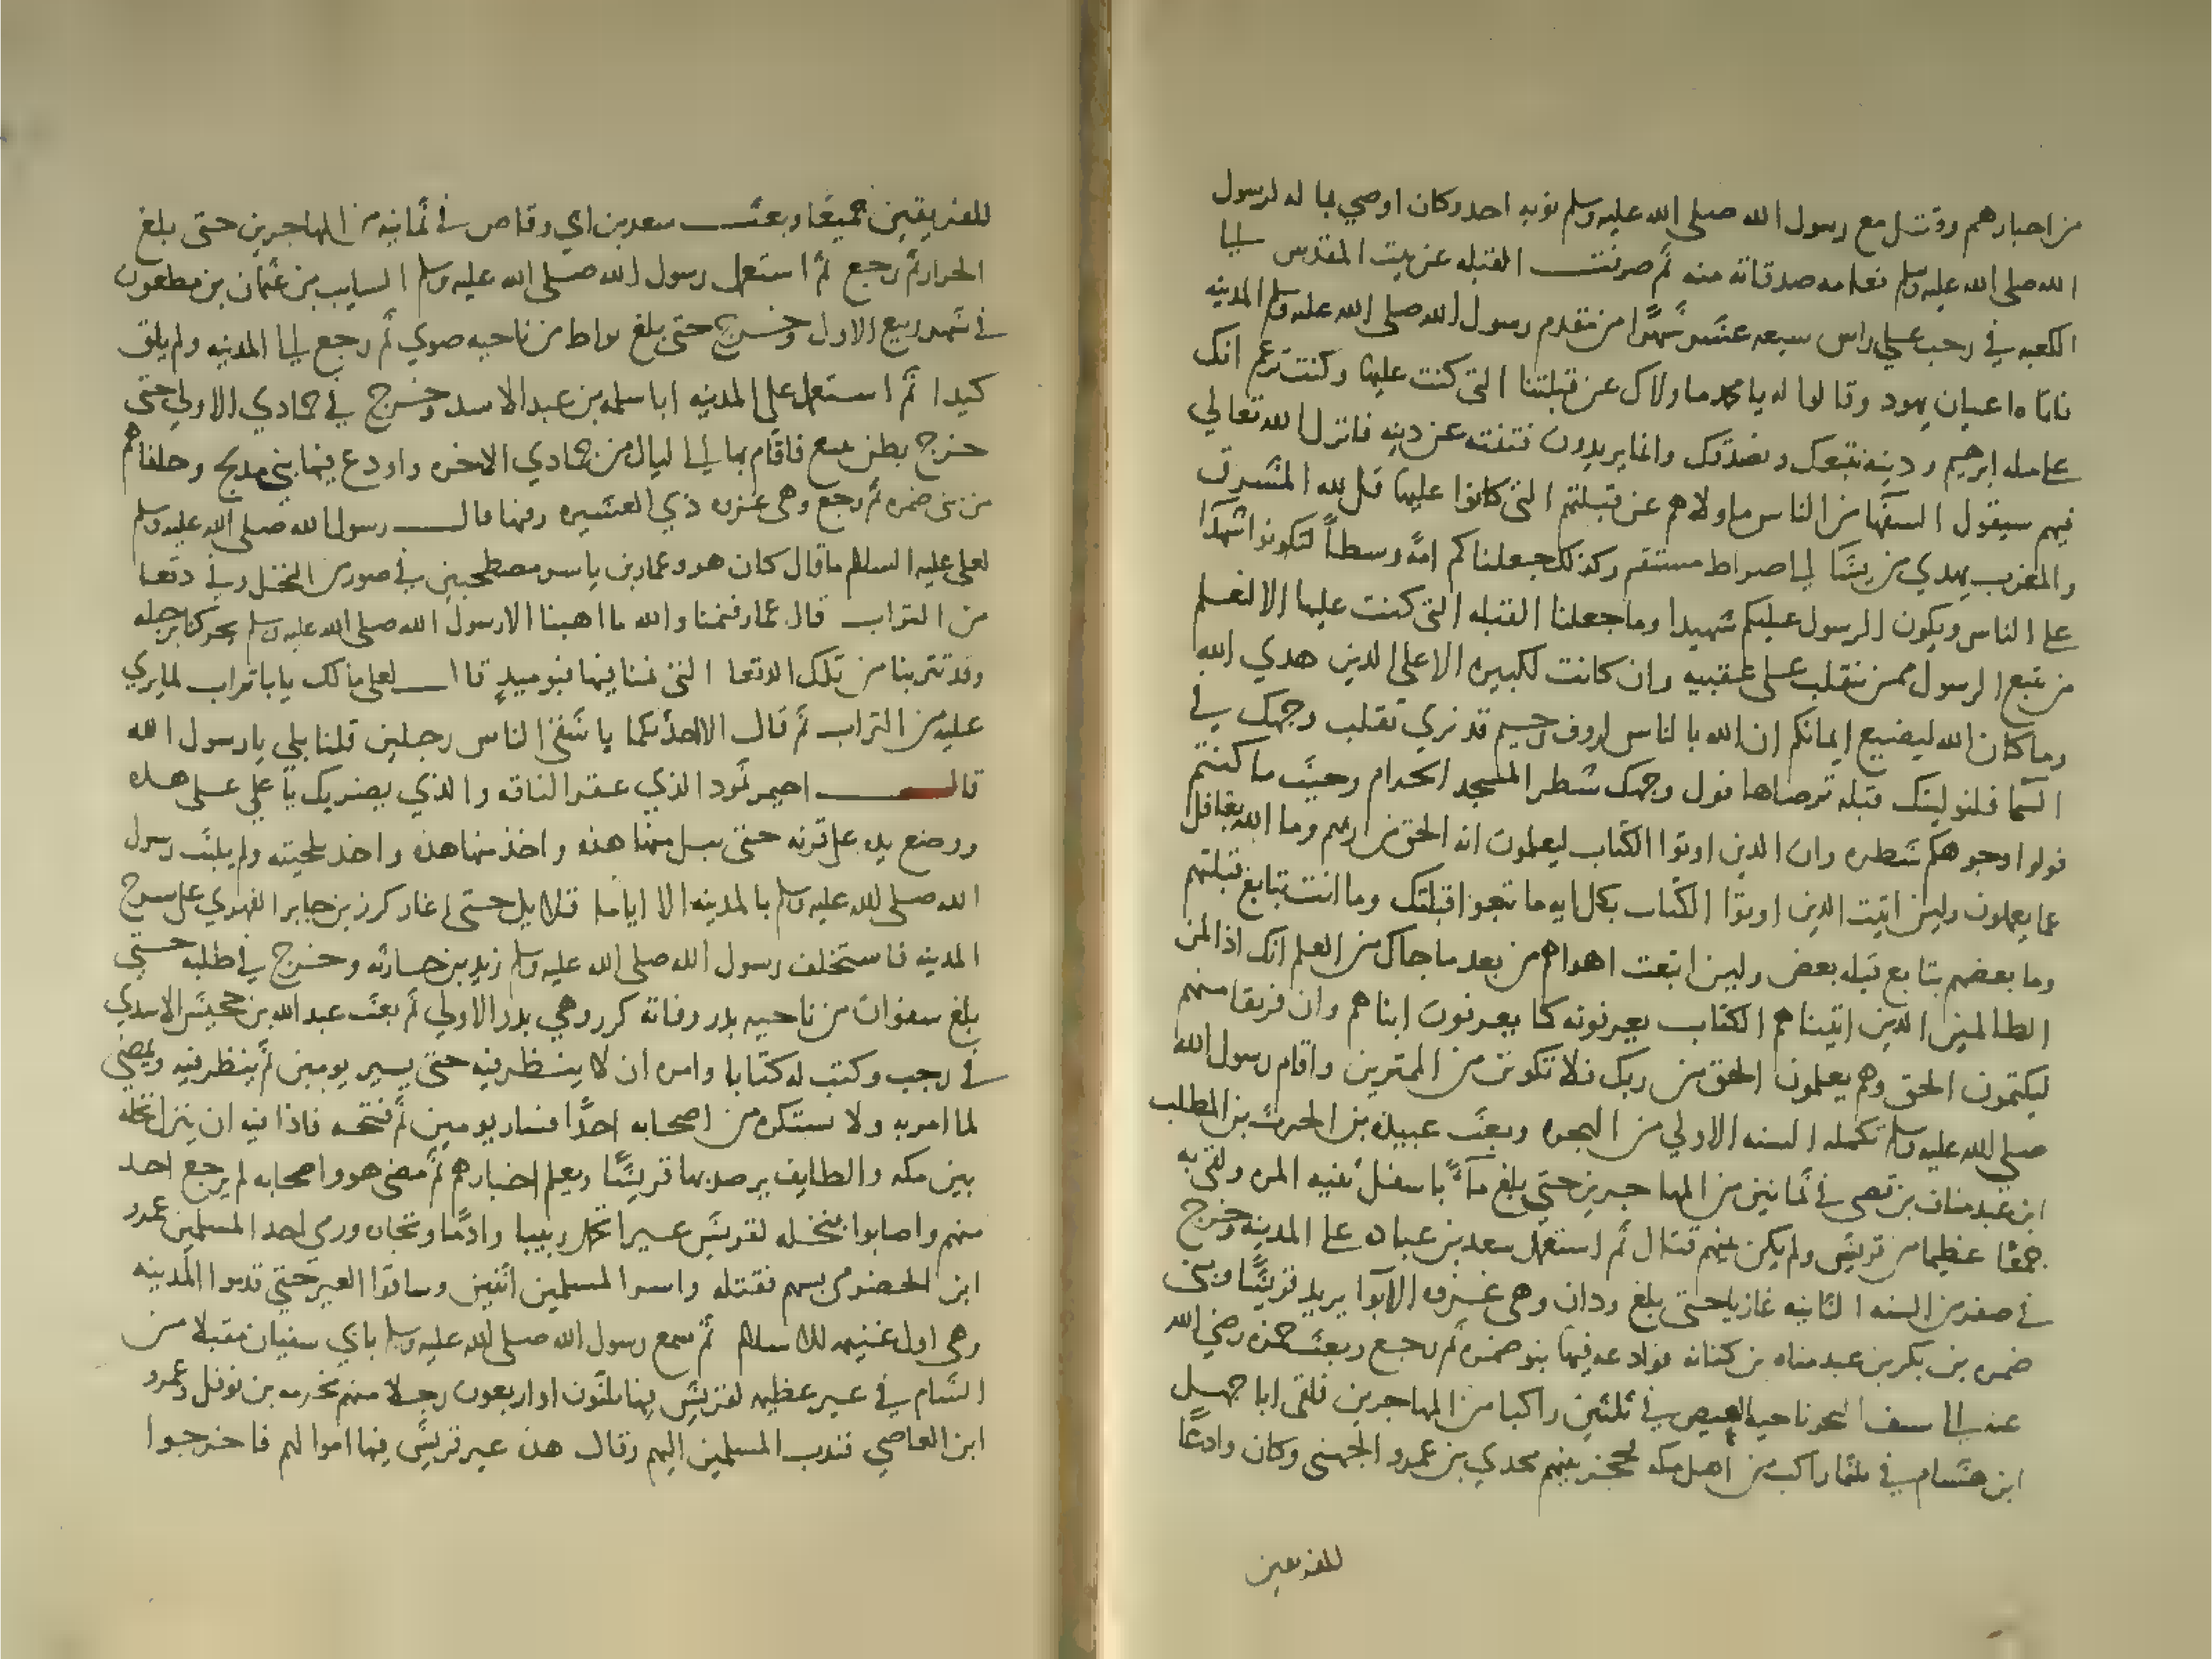 من احبارهم وقتل مع رسول الله صلى الله عليه وسلم يوم احد وكان اوصي بماله لرسول
الله صلى الله عليه وسلم فعامه صدقاته منه ثم صرفت القبله عن بيت المقدس الي
الكعبه في رجب علي راس سبعه عشر شهرًا من مقدم رسول الله صلى الله عليه وسلم المدينه
فاتاه اعيان يهود وقالوا له يا محمد ما ولاك عن قبلتنا التي كنت عليها وكنت تزعم انك
علي مله ابرهيم ودينه نتبعك ونصدقك وانما يريدون فتنته عن دينه فانزل الله تعالي
فيهم سيقول السفها من الناس ما ولاهم عن قبلتهم التي كانوا عليها قل لله المشرق
والمغرب يهدي من يشا الي صراط مستقيم وكذلك جعلناكم امةً وسطاً لتكونوا شهدآ
علي الناس ويكون الرسول عليكم شهيدا وما جعلنا القبله التي كنت عليها الا لنعلم
من يتبع الرسول ممن ينقلب علي عقبيه وان كانت لكبيره الا علي الذين هدي الله
وما كان الله ليضيع ايمانكم ان الله بالناس لروف رحيم قد نري تقلب وجهك في
السما فلنولينك قبله ترضاها فول وجهك شطر المسجد الحرام وحيث ما كنتم
فولوا وجوهكم شطره وان الذين اوتوا الكتاب ليعلمون انه الحق من ربهم وما الله بغافل
عما يعملون ولين اتيت الذين اوتوا الكتاب بكل ايه ما تبعوا قبلتك وما انت بتابع قبلتهم
وما بعضهم بتابع قبله بعض ولين اتبعت اهواهم من بعد ما جاك من العلم انك اذا لمن
الظالمين الذين اتيناهم الكتاب يعرفونه كما يعرفون ابناهم وان فريقا منهم
ليكتمون الحق وهم يعلمون الحق من ربك فلا تكونن من الممترين واقام رسول الله
صلى الله عليه وسلم تكمله السنه الاولي من الهجره وبعث عبيده بن الحرث بن المطلب
ابن عبد مناف بن قصي في ثمانين من المهاجرين حتي بلغ مآءً باسفل ثنيه المره ولقي به
جمعًا عظيما من قريش ولم يكن بينهم قتال ثم استعمل سعد بن عباده علي المدينه وخرج
في صفر من السنه الثانيه غازيا حتي بلغ ودان وهي غزوه الابوا يريد قريشًا وبني
ضمره بن بكر بن عبد مناه بن كنانه فوادعه فيها بنو ضمره ثم رجع وبعث حمزه رضي الله
عنه الي سيف البحر ناحيه العيص في ثلثين راكبا من المهاجرين فلقي ابا جهل
ابن هشام في ثلثمايه راكب من اهل مكه فحجز بينهم مجدي بن عمرو الجهني وكان وادعًا
للفريقين
للفريقين جميعًا وبعث سعد بن ابي وقاص في ثمانيه من المهاجرين حتي بلغ
الخرار ثم رجع ثم استعمل رسول الله صلى الله عليه وسلم السايب بن عثمان بن مظعون
في شهر ربيع الاول وخرج حتي بلغ بواط من ناحيه رضوي ثم رجع الي المدينه ولم يلق
كيدا ثم استعمل علي المدينه ابا سلمه بن عبد الاسد وخرج في جمادي الاولي حتي
خرج بطن ينبع فاقام بها الي ليال من جمادي الاخره واودع فيها بني مدلج وحلفاهم
من بني ضمره ثم رجع وهي غزوه ذي العشيره وفيها قال رسول الله صلى الله عليه وسلم
لعلي عليه السلام ما قال كان هو وعمار بن ياسر مضطجعين في صور من النخل وفي دقعا
من التراب قال عمار فنمنا والله ما اهبنا الا رسول الله صلى الله عليه وسلم يحركنا برجله
وقد تتربنا من تلك الدقعا التي نمنا فيها فيوميذٍ قال لعلي مالك يا با تراب لما يري
عليه من التراب ثم قال الا احدثكما باشقي الناس رجلين قلنا بلي يا رسول الله
قال احيمر ثمود الذي عقر الناقه والذي يضربك يا علي علي هذه
ووضع يده علي قرنه حتي يبل منها هذه واخذ منها هذه واخذ بلحيته ولم يلبث رسول
الله صلى الله عليه وسلم بالمدينه الا اياما قلايل حتي اغار كرز بن جابر الفهري علي سرح
المدينه فاستخلف رسول الله صلى الله عليه وسلم زيد بن حارثه وخرج في طلبه حتي
بلغ سفوان من ناحيه بدر وفاته كرز وهي بدر الاولي ثم بعث عبد الله بن جحش الاسدي
في رجب وكتب له كتابا وامره ان لا ينظر فيه حتي يسير يومين ثم ينظر فيه ويمضي
لما امر به ولا يستكره من اصحابه احدًا فسار يومين ثم فتحه فاذا فيه ان ينزل نخله
بين مكه والطايف يرصد بها قريشًا ويعلم اخبارهم ثم مضي هو واصحابه لم يرجع احد
منهم واصابوا بنخله لقريش عيرا تحمل زبيبا وادمًا وتجاره ورمي احد المسلمين عمرو
ابن الحضرمي بسهم فقتله واسر المسلمين اثنين وساقوا العير حتي قدموا المدينه
وهي اول غنيمه للاسلام ثم سمع رسول الله صلى الله عليه وسلم بابي سفيان مقبلا من
الشام في عير عظيمه لقريش فيها ثلثون او اربعون رجلا منهم مخرمه بن نوفل وعمرو
ابن العاصي فندب المسلمين اليهم وقال هذه عير قريش فيها اموالهم فاخرجوا